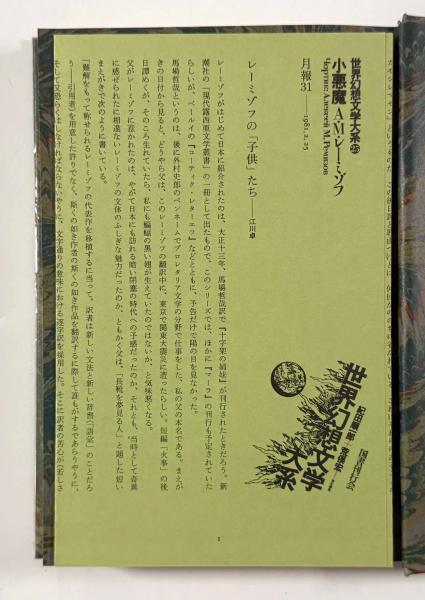 世界幻想文学大系㉕
小悪魔 A・M・レーミゾフ
Чертик Алексей М. Ремизов
月報31——1981.2.25
紀田順一郎・荒俣宏
国書刊行会
世界
幻想文学
大系
レーミゾフの「子供」たち——江川卓
レーミゾフがはじめて日本に紹介されたのは、大正十三年、馬場哲哉訳で『十字架の姉妹』が刊行されたときだろう。新
潮社の「現代露西亜文学叢書」の一冊として出たもので、このシリーズでは、ほかに『マーラ』の刊行も予定されていた
らしいが、ベールイの『コーティック・レターエフ』などとともに、予告だけで陽の目を見なかった。
馬場哲哉というのは、後に外村史郎のペンネームでプロレタリア文学の分野で仕事をした、私の父の本名である。まえが
きの日付から見ると、どうやら父は、このレーミゾフの翻訳中に、東京で関東大震災に遭ったらしい。短編「火事」の後
日譚めくが、そのころ生れていたら、私にも蝙蝠の黒い翅が生えていたのではないか、と気味悪くなる。
父がレーミゾフに惹かれたのは、やがて日本にも訪れる暗い閉塞の時代への予感だったのか、それとも、当時として奇異
に感ぜられたに相違ないレーミゾフの文体のふしぎな魅力だったのか、ともかく父は、「長靴を夢見る人」と題した短い
まえがきで次のように書いている。
「難解をもって称せられるレーミゾフの代表作を移植するに当って、訳者は新しい文法と新しい辞書（「語彙」のことだろ
う——引用者）を用意した許りでなく、斯くの如き作者の斯くの如き作品を翻訳するに際して誰もがするであらうやうに、
そして又恐らくはしなければならないやうに、文字通りの意味における逐字訳を採用した。そこに訳者の苦心が（若しさ
1